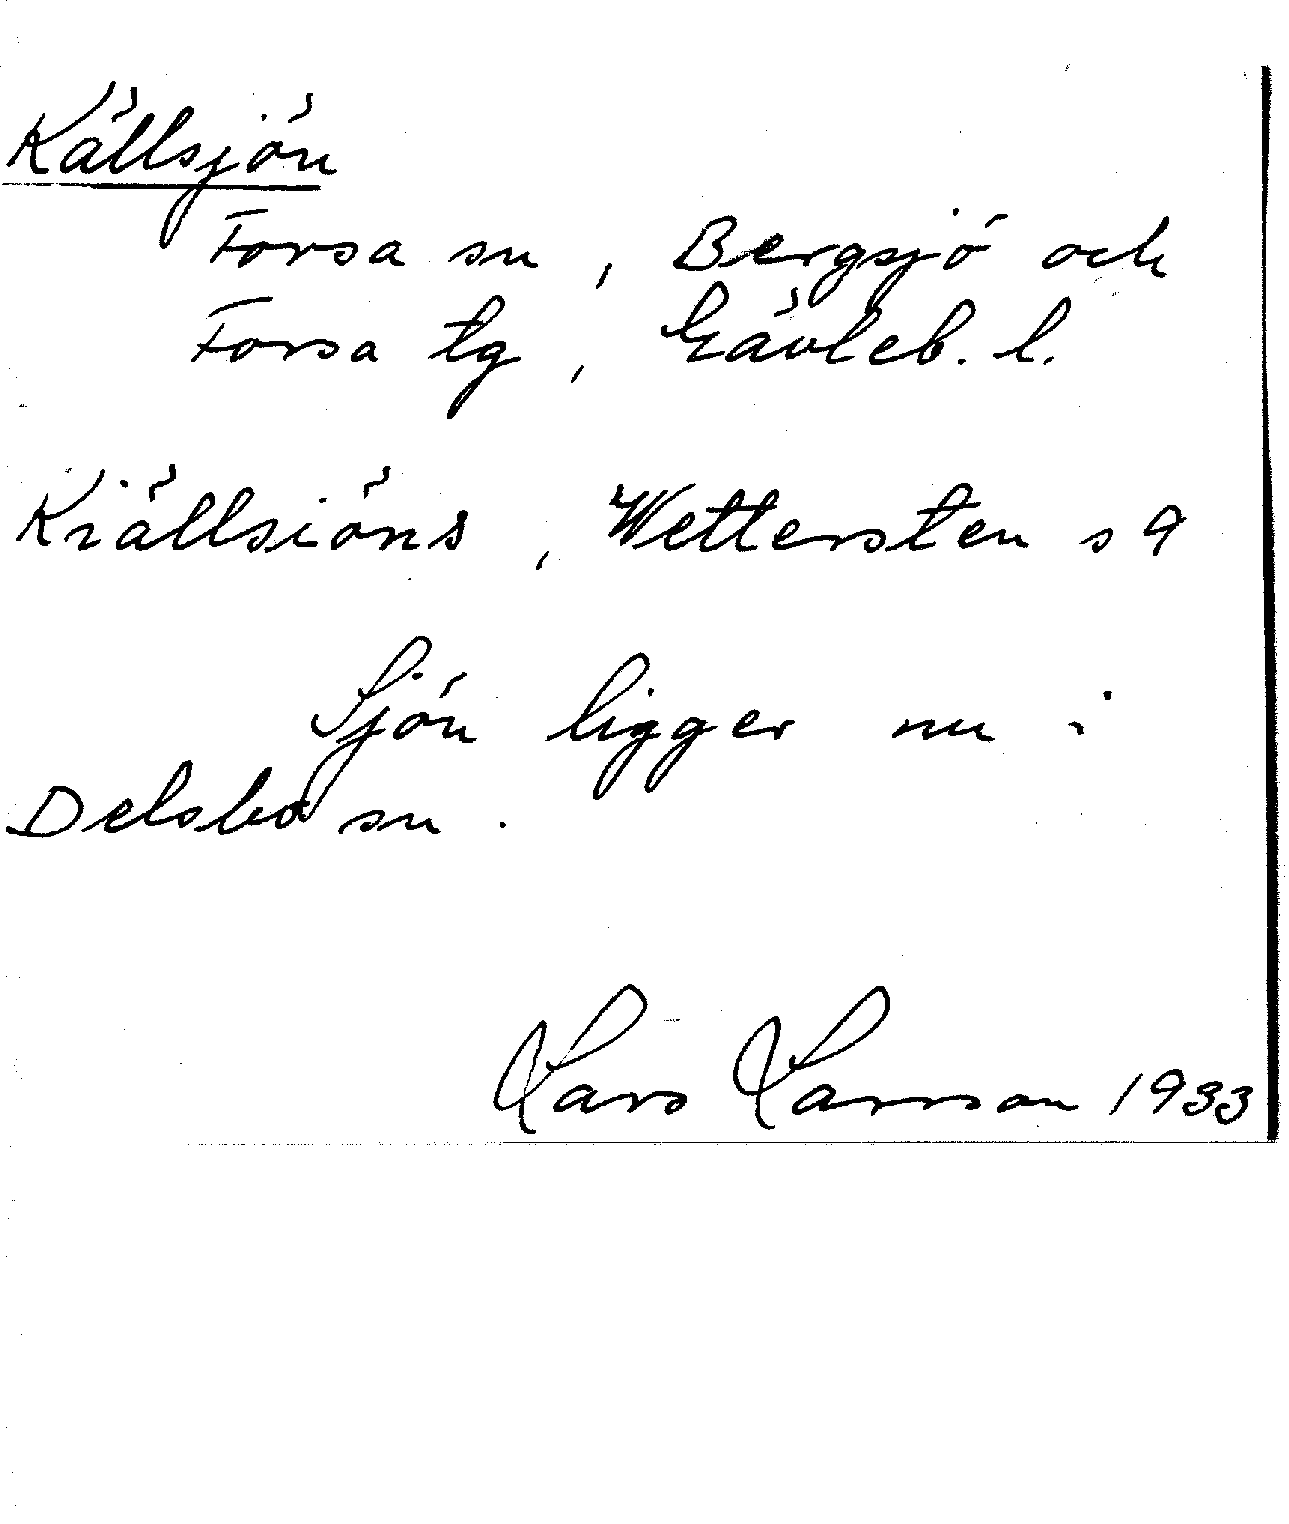 Källsjön
Forsa sn, Bergsjö och
Forsa tg, Gävleb. l.
Kiällsiöns, Wettersten s 9
Sjön ligger nu i
Delsbo sn.
Lars Larsson 1933